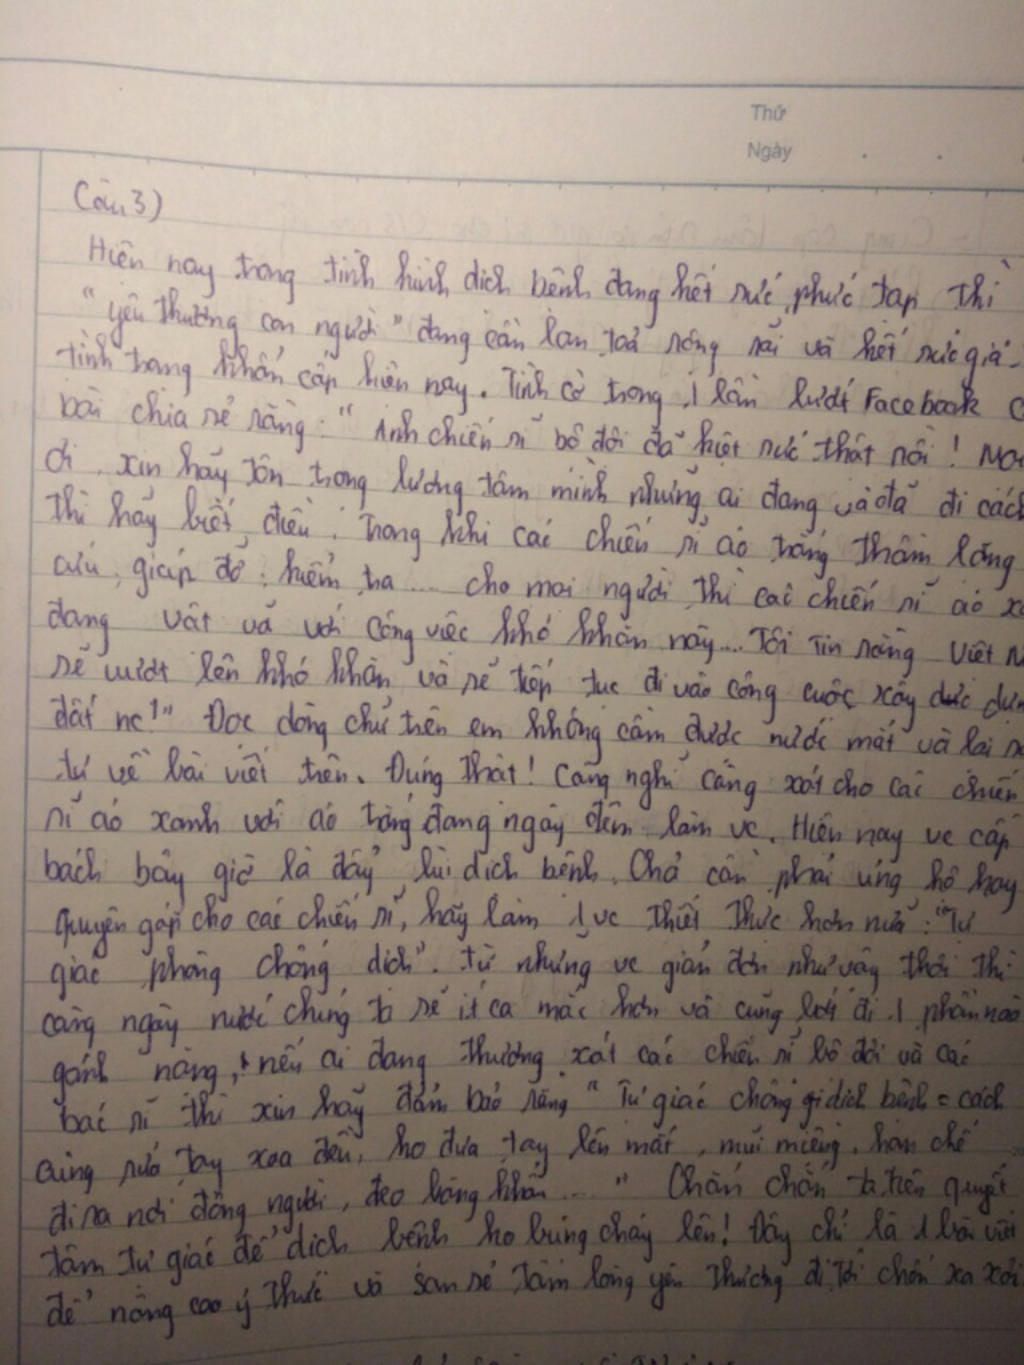 Thứ
Ngày
Câu 3)
Hiện nay trong tình hình dịch bệnh đang hết sức phức tạp thì
"yêu thương con người" đang cần lan toả rộng rãi và hết sức giá
tình trạng khẩn cấp hiện nay. Tình cờ trong 1 lần lướt Facebook
bài chia sẻ rằng: "Anh chiến sĩ bộ đội đã kiệt sức thật rồi!
ơi, xin hãy tôn trọng lương tâm mình những ai đang và đã đi cách
thì hãy biết điều. Trong khi các chiến sĩ áo trắng thầm lặng
cứu, giúp đỡ, kiểm tra.... cho mọi người thì các chiến sĩ áo
đang vật vã với công việc khó khăn này... Tôi tin rằng Việt
sẽ vượt lên khó khăn và sẽ tiếp tục đi vào công cuộc xây
đất nc!" Đọc dòng chữ trên em không cầm được nước mắt và lại
tư về bài viết trên. Đúng thật! Càng nghĩ càng xót cho các chiến
sĩ áo xanh với áo trắng đang ngày đêm làm vc. Hiện nay vc cấp
bách bây giờ là đẩy lùi dịch bệnh. Chả cần phải ủng hộ hay
quyên góp cho các chiến sĩ, hãy làm 1 vc thiết thực hơn nữa: "Tự
giác phòng chống dịch". Từ những vc giản đơn như vậy thôi thì
càng ngày nước chúng ta sẽ ít ca mắc hơn và cũng bớt đi 1 phần nào
gánh nặng, nếu ai đang thương xót các chiến sĩ bộ đội và các
bác sĩ thì xin hãy đảm bảo rằng "Tự giác chống dịch bệnh = cách
cùng rửa tay xoa đều, ko đưa tay lên mắt, mũi miệng, hạn chế
đi ra nơi đông người, đeo băng khẩu ..." Chắc chắn ta, tiên quyết
tâm tự giác để dịch bệnh ko bùng cháy lên! Đây chỉ là 1 bài viết
để nâng cao ý thức và san sẻ tấm lòng yêu thương đi tới chốn xa xôi